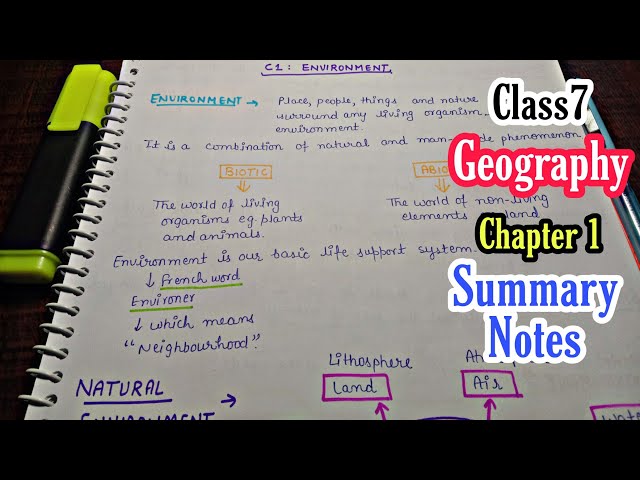 C1: ENVIRONMENT
ENVIRONMENT → Place, people, things and nature
surround any living organism
environment.
It is a combination of natural and man phenomenon
BIOTIC
The world of living
organisms eg. plants
and animals.
The world of non-living
elements land
Environment is our basic life support system.
↓ French word
Environer
↓ which means
"Neighbourhood".
NATURAL →
ENVIRONMENT
Lithosphere
Land
Air
Class7
Geography
Chapter 1
Summary
Notes